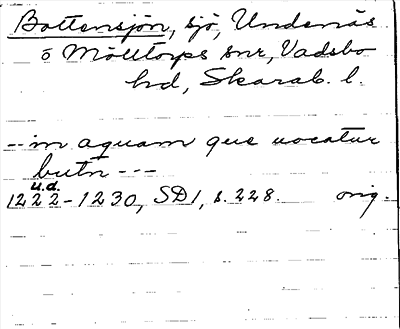 Bottensjön, sjö, Undenäs
o Mölltorps snr, Vadsbo
hd, Skarab. l.
-- in aquam que uocatur
butn ---
u.d.
1222-1230, SD1, s. 228. orig.